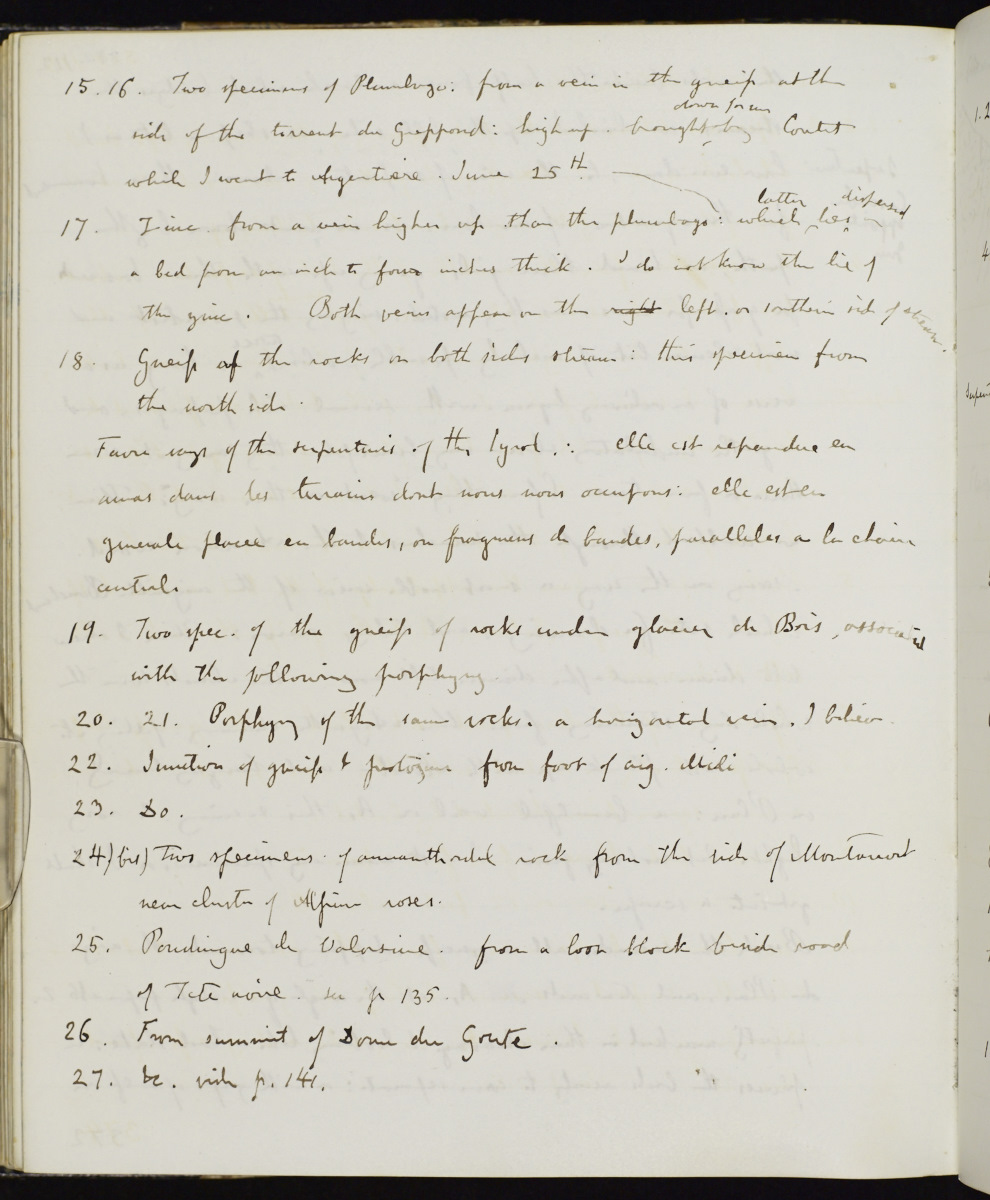 15. 16. Two specimens of Plumbago: from a vein in the gneiss at the
side of the torrent du Greppond: high up. brought down for me by Coutet
while I went to Argentiere. June 25th.
17. Zinc. from a vein higher up than the plumbago: which latter lies dispersed
a bed from an inch to four inches thick. I do not know the lie of
the zinc. Both veins appear on the right left. or southern side of stream.
18. Gneiss of the rocks on both sides stream: this specimen from
the north side.
Favre says of the serpentines of the Tyrol.: elle est repandue en
amas dans les terrains dont nous nous occupons: elle est en
generale placee en bandes, ou fragmens de bandes, paralleles a la chaine
centrale
19. Two spec. of the gneiss of rocks under glacier des Bois, associated
with the following porphyry.
20. 21. Porphyry of the same rocks. a horizontal vein, I believe.
22. Junction of gneiss & protogine from foot of aig. Midi
23. Do.
24) (bis) Two specimens of amianthoidal rock from the side of Montanvert
near cluster of Alpine roses.
25. Poudingue de Valorsine. from a loose block beside road
of Tete noire. see p 135.
26. From summit of Dome du Goute.
27. &c. vide p. 141.